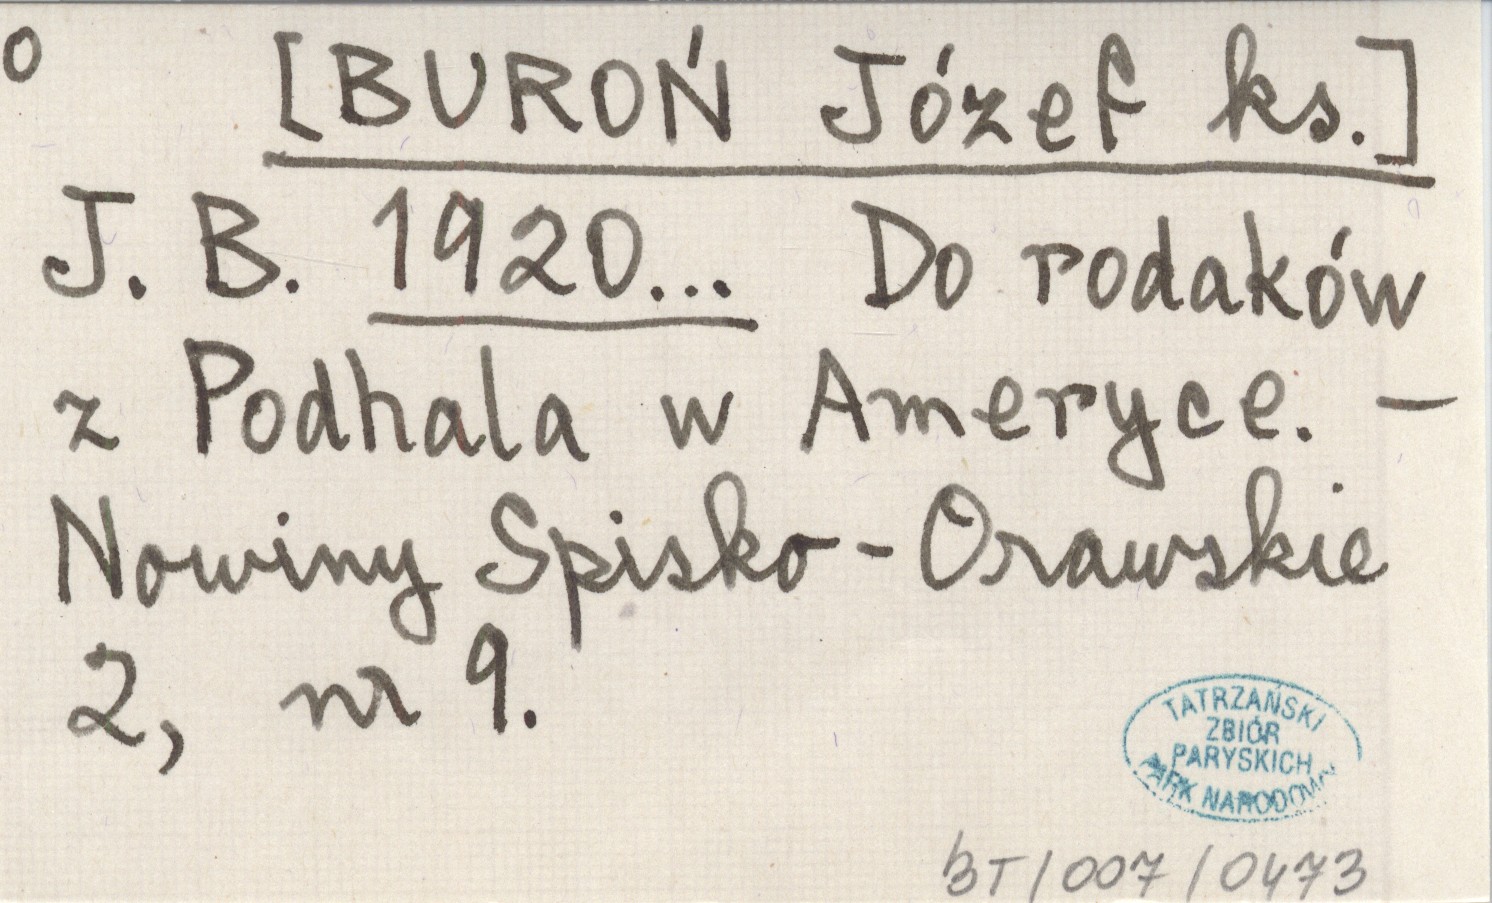 o [BUROŃ Józef ks.]
J. B. 1920... Do rodaków
z Podhala w Ameryce. —
Nowiny Spisko-Orawskie
2, nr 9.
TATRZAŃSKI
ZBIÓR
PARYSKICH
PARK NARODOWY
BT/007/0473